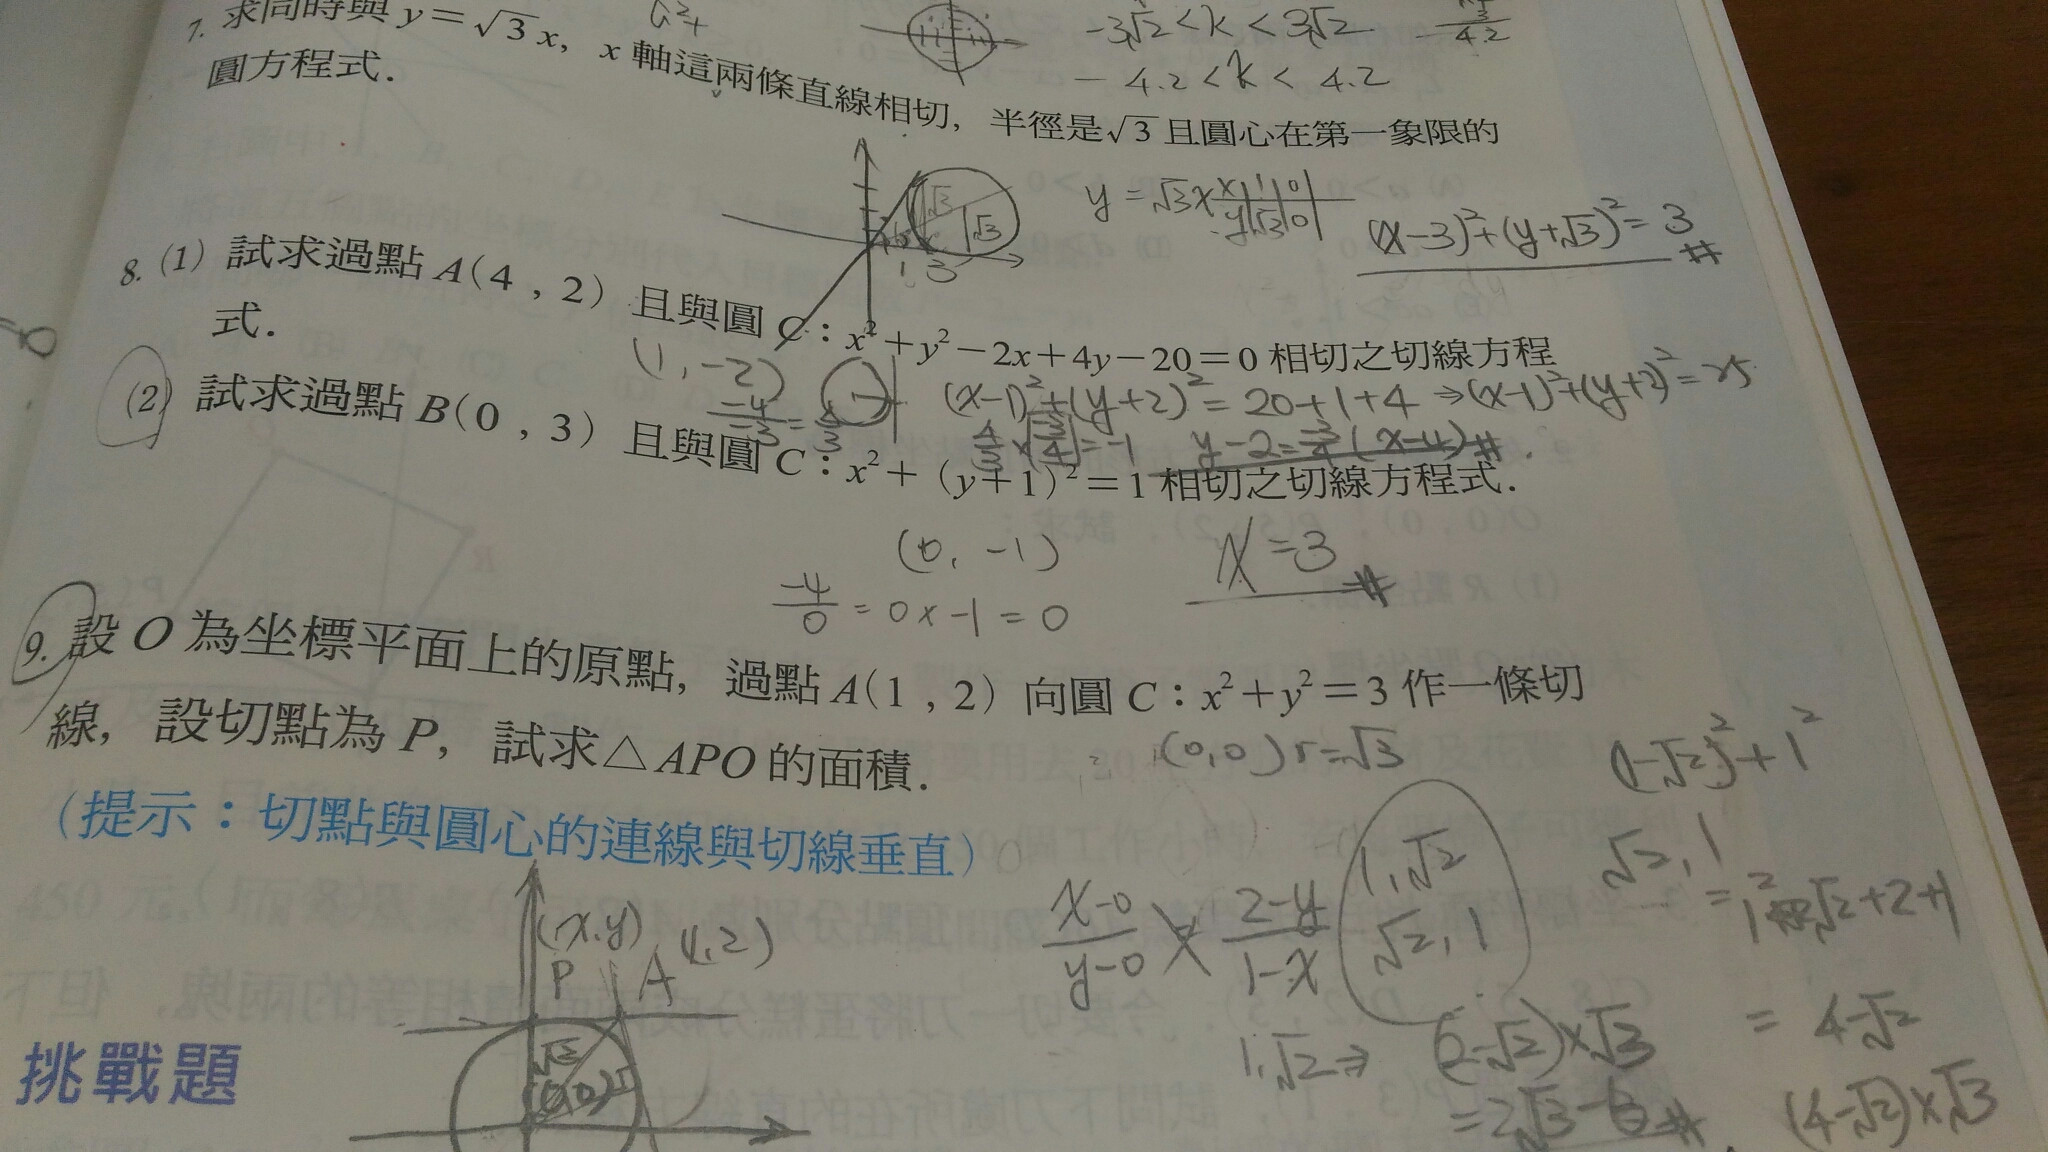 7. 求同時與 y = √3 x, x 軸這兩條直線相切, 半徑是 √3 且圓心在第一象限的
圓方程式.
-3√2 < k < 3√2
- 4.2 < k < 4.2
y = √3 x
x | 1 | 0
y | √3 | 0
√3
√3
1 3
(x-3)² + (y+√3)² = 3 #
8. (1) 試求過點 A(4 , 2) 且與圓 C : x² + y² - 2x + 4y - 20 = 0 相切之切線方程
式.
(1, -2)
(x-1)² + (y+2)² = 20+1+4 ⇒ (x-1)² + (y+2)² = 25
-4/-3 = 4/3
4/3 × -3/4 = -1
y-2 = -3/4 (x-4) #
(2) 試求過點 B(0 , 3) 且與圓 C : x² + (y+1)² = 1 相切之切線方程式.
(0, -1)
x = 3 #
-4/0 = 0 x -1 = 0
9. 設 O 為坐標平面上的原點, 過點 A(1 , 2) 向圓 C : x² + y² = 3 作一條切
線, 設切點為 P, 試求△APO 的面積.
(0,0) r=√3
(1-√2)² + 1²
(提示:切點與圓心的連線與切線垂直)
√2, 1
(x,y)
P
A (1,2)
√3
x-0/y-0 × 2-y/1-x
1, √2
√2, 1
1, √2 ⇒
= 4-√2
(4-√2)×√3
挑戰題